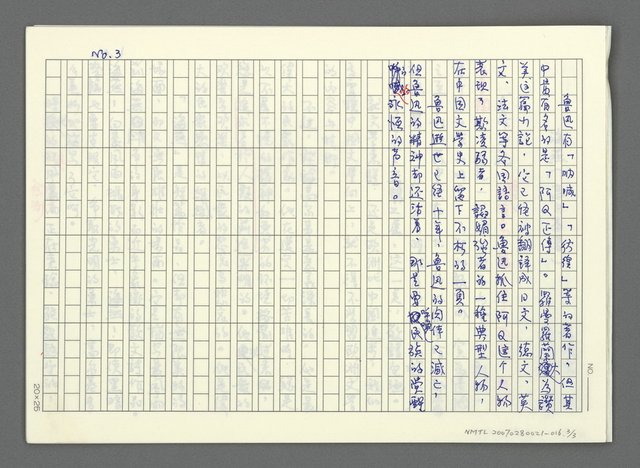 No. 3
魯迅有「吶喊」「彷徨」等的著作，但其
中最有名的是「阿Q正傳」。羅曼羅蘭大為讚
美這篇小說，它已經被翻譯成日文，德文，英
文，法文等各国語言。魯迅抓住阿Q這个人物
表現了欺凌弱者，諂媚強者的一種典型人物，
在中国文學史上留下不朽的一頁。
魯迅逝世已經十年，魯迅的肉体已滅亡，
但魯迅的精神却还活著，那是要求民族的覺醒
永恒的声音。
NO.
20×25
NMTL 20070280021-016 3/3